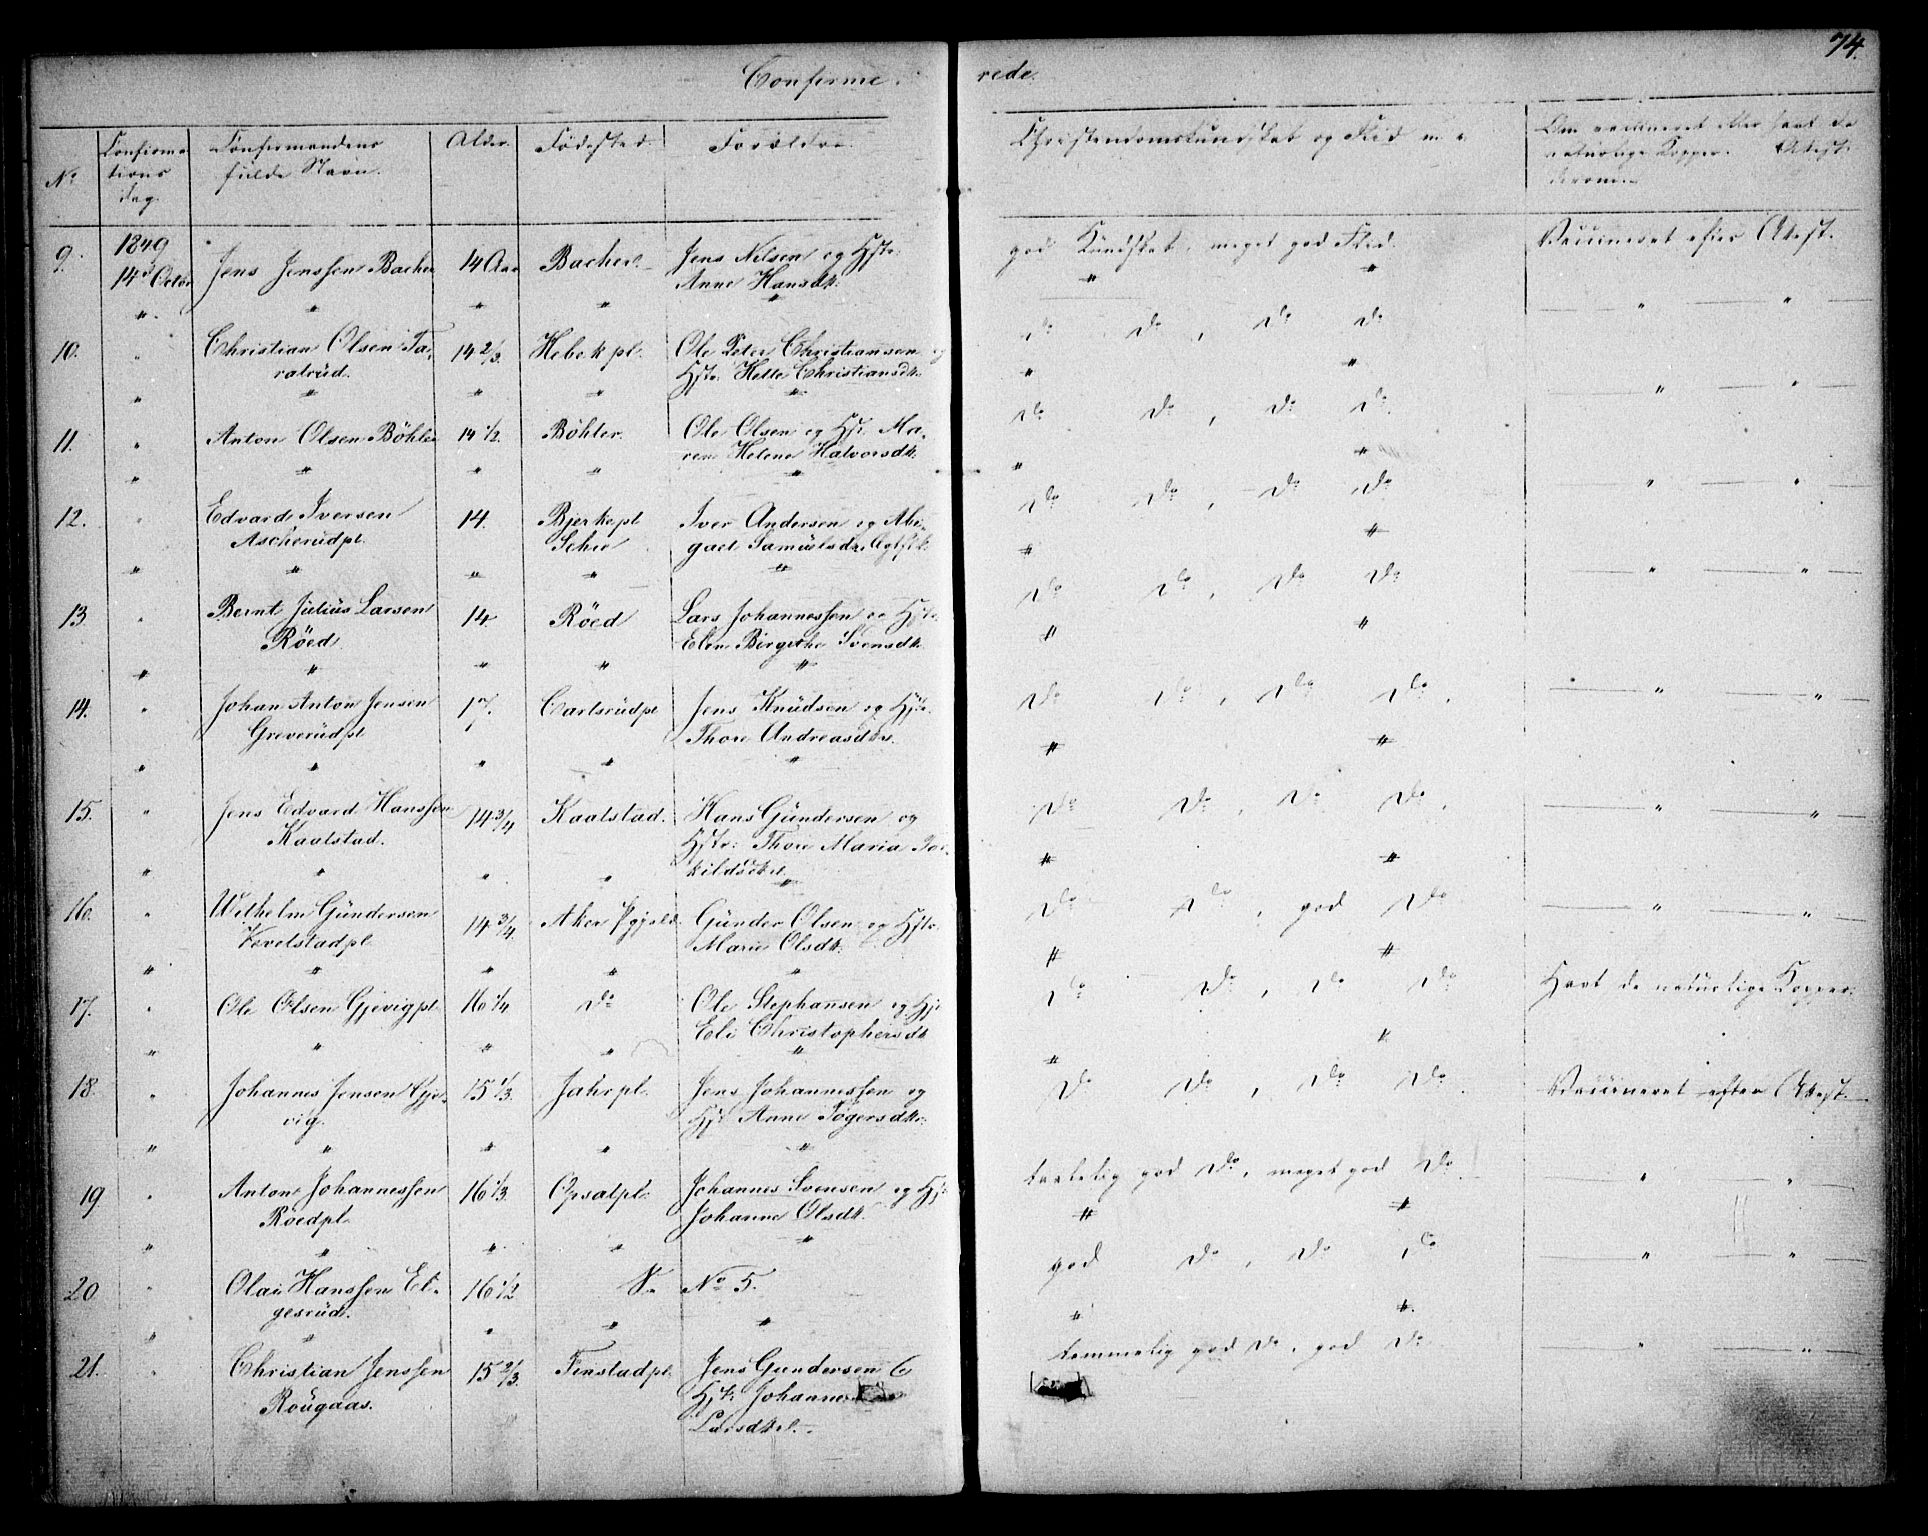 74.
Confirme- rede.
No
Confirma-
tions
dag.
Confirmandens
fulde Navn.
Alder.
Fødested.
Forældre.
Christendomskundskab og Flid m. v.
Om vaccineret eller havt de
naturlige Kopper. Attest
derom.
9. 1849
14d Octbr Jens Jenssen Bacher 14 Aar Bacher. Jens Nilsen og Hstr:
Anne Hansdtr: god Kundskab, meget god Flid. Vaccineret efter Attest.
10. " Christian Olsen Ta-
ratrud. 14 2/3. Hebekpl. Ole Peter Christiansen og
Hstr: Kette Christiansdtr. Do Do, Do Do " "
11. " Anton Olsen Böhler 14 1/2. Böhler. Ole Olsen og Hst. Ma-
ren Helene Halvorsdtr: Do Do, Do Do. " "
12. " Edvard Iversen
Ascherudpl. 14. Bjerkepl
Schie Iver Andersen og Abi-
gael Samuelsdr. Do Do, Do Do " "
13 " Bernt Julius Larsen
Röed. 14. Röed Lars Johannessen og Hstr.
Elen Birgithe Svensdtr. Do Do, Do Do " "
14. " Johan Anton Jensen
Greverudpl 17. Carlsrudpl Jens Knudsen og Hstr.
Thore Andreasdtr. Do Do, Do Do. " "
15. " Jens Edvard Hanssen
Kaalstad. 14 3/4 Kaalstad. Hans Gundersen og
Hstr: Thore Maria Tor-
kildsdtr. Do Do, Do Do. " "
16. " Wilhelm Gundersen
Kvelstadpl. 14 3/4. Aker Pgjeld Gunder Olsen og Hstr.
Marie Olsdtr. Do Do, god Do " "
17. " Ole Olsen Gjevigpl 16 1/4 Do Ole Stephansen og Hst
Eli Christophersdtr Do Do, Do Do Havt de naturlige Kopper.
18. " Johannes Jensen Gje-
vig. 15 1/3. Jahrpl. Jens Johannessen og
Hst Anne Tøgersdtr. Do Do, Do Do Vaccineret efter Attest.
19 " Anton Johannessen
Roedpl. 16 1/3. Opsalpl. Johannes Svensen og Hst
Johanne Olsdtr. taalelig god Do, meget god Do. " "
20 " Olai Hanssen El-
gesrud. 16 1/2 S. No 5. god Do, Do Do " "
21. " Christian Jenssen
Röugaas. 15 2/3. Finstadpl. Jens Gundersen
Hstr. Johanne
Larsdtr. temmelig god Do, god Do " "